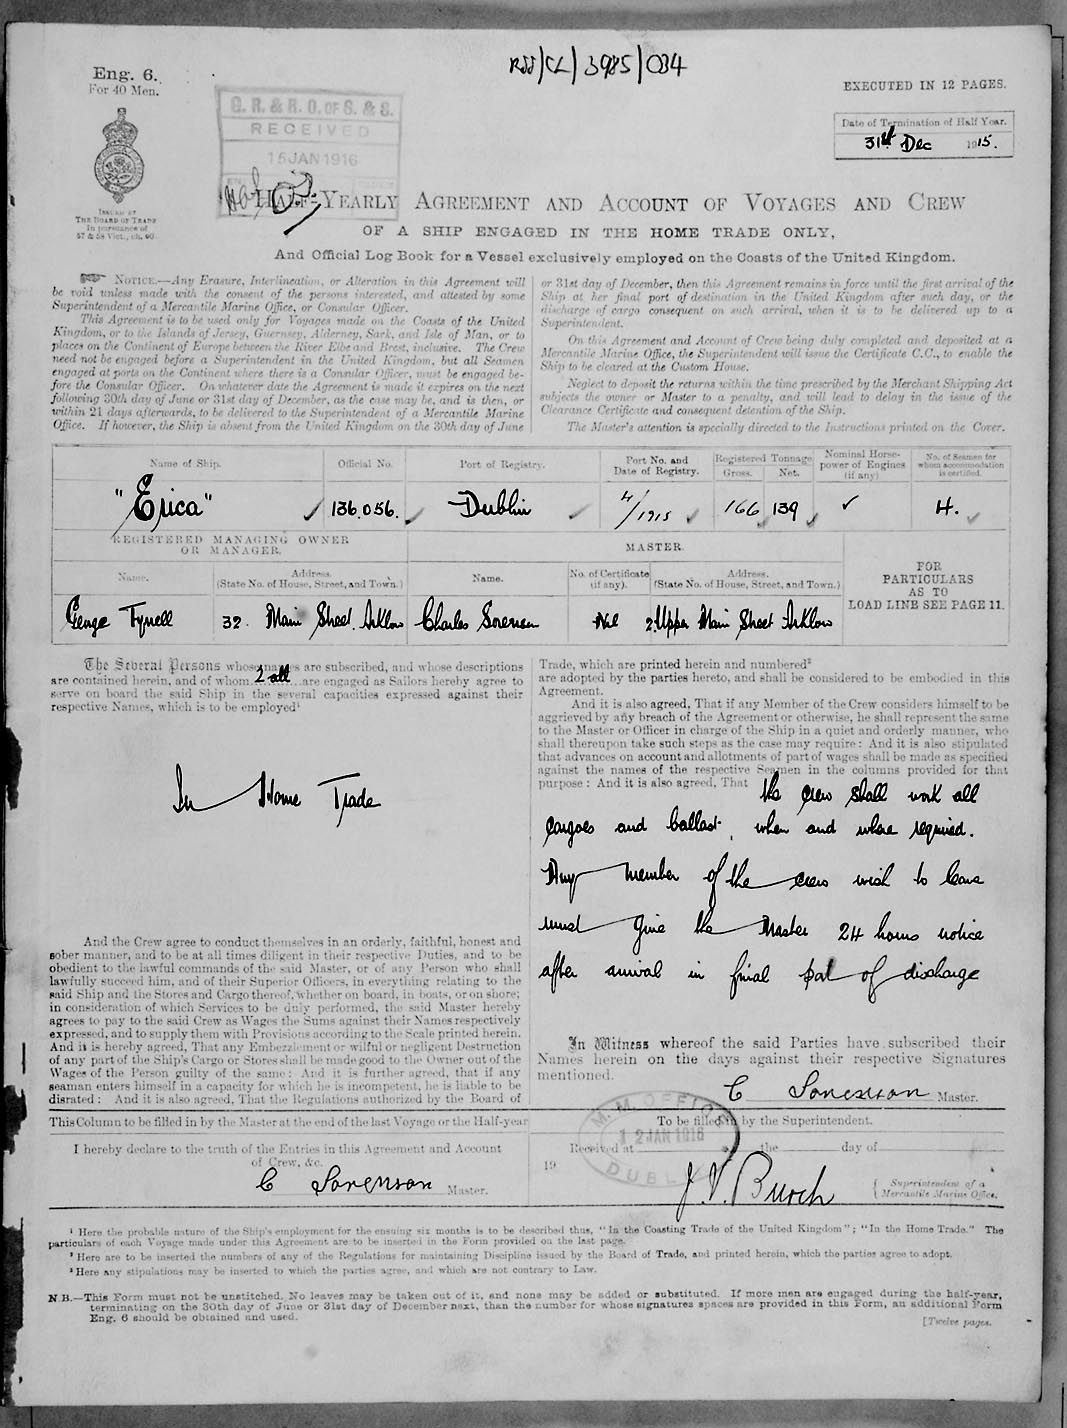 RSS/CL/3985/034
Eng. 6.
For 40 Men.
EXECUTED IN 12 PAGES.
G. R. & R. O. OF S. & S.
RECEIVED
15 JAN 1916
Date of Termination of Half Year.
31st Dec 1915.
ISSUED BY
THE BOARD OF TRADE
In pursuance of
57 & 58 Vict., ch. 60
HALF-YEARLY AGREEMENT AND ACCOUNT OF VOYAGES AND CREW
OF A SHIP ENGAGED IN THE HOME TRADE ONLY,
And Official Log Book for a Vessel exclusively employed on the Coasts of the United Kingdom.
NOTICE.—Any Erasure, Interlineation, or Alteration in this Agreement will
be void unless made with the consent of the persons interested, and attested by some
Superintendent of a Mercantile Marine Office, or Consular Officer.
This Agreement is to be used only for Voyages made on the Coasts of the United
Kingdom, or to the Islands of Jersey, Guernsey, Alderney, Sark, and Isle of Man, or to
places on the Continent of Europe between the River Elbe and Brest, inclusive. The Crew
need not be engaged before a Superintendent in the United Kingdom, but all Seamen
engaged at ports on the Continent where there is a Consular Officer, must be engaged be-
fore the Consular Officer. On whatever date the Agreement is made it expires on the next
following 30th day of June or 31st day of December, as the case may be, and is then, or
within 21 days afterwards, to be delivered to the Superintendent of a Mercantile Marine
Office. If however, the Ship is absent from the United Kingdom on the 30th day of June
or 31st day of December, then this Agreement remains in force until the first arrival of the
Ship at her final port of destination in the United Kingdom after such day, or the
discharge of cargo consequent on such arrival, when it is to be delivered up to a
Superintendent.
On this Agreement and Account of Crew being duly completed and deposited at a
Mercantile Marine Office, the Superintendent will issue the Certificate C.C., to enable the
Ship to be cleared at the Custom House.
Neglect to deposit the returns within the time prescribed by the Merchant Shipping Act
subjects the owner or Master to a penalty, and will lead to delay in the issue of the
Clearance Certificate and consequent detention of the Ship.
The Master's attention is specially directed to the Instructions printed on the Cover.
Name of Ship. Official No. Port of Registry. Port No. and Date of Registry. Registered Tonnage Gross. Net. Nominal Horse-power of Engines (if any) No. of Seamen for whom accommodation is certified.
"Erica" 136.056. Dublin 4/1915 166 139 4.
REGISTERED MANAGING OWNER OR MANAGER.
MASTER.
FOR PARTICULARS AS TO LOAD LINE SEE PAGE 11.
Name. Address. (State No. of House, Street, and Town.) Name. No. of Certificate (if any). Address. (State No. of House, Street, and Town.)
George Tyrrell 32. Main Street. Arklow Charles Sorensen Nil 2. Upper Main Street Arklow
The Several Persons whose names are subscribed, and whose descriptions
are contained herein, and of whom 2 all are engaged as Sailors hereby agree to
serve on board the said Ship in the several capacities expressed against their
respective Names, which is to be employed¹
In Home Trade
And the Crew agree to conduct themselves in an orderly, faithful, honest and
sober manner, and to be at all times diligent in their respective Duties, and to be
obedient to the lawful commands of the said Master, or of any Person who shall
lawfully succeed him, and of their Superior Officers, in everything relating to the
said Ship and the Stores and Cargo thereof, whether on board, in boats, or on shore;
in consideration of which Services to be duly performed, the said Master hereby
agrees to pay to the said Crew as Wages the Sums against their Names respectively
expressed, and to supply them with Provisions according to the Scale printed herein.
And it is hereby agreed, That any Embezzlement or wilful or negligent Destruction
of any part of the Ship's Cargo or Stores shall be made good to the Owner out of the
Wages of the Person guilty of the same: And it is further agreed, that if any
seaman enters himself in a capacity for which he is incompetent, he is liable to be
disrated: And it is also agreed, That the Regulations authorized by the Board of
Trade, which are printed herein and numbered²
are adopted by the parties hereto, and shall be considered to be embodied in this
Agreement.
And it is also agreed, That if any Member of the Crew considers himself to be
aggrieved by any breach of the Agreement or otherwise, he shall represent the same
to the Master or Officer in charge of the Ship in a quiet and orderly manner, who
shall thereupon take such steps as the case may require: And it is also stipulated
that advances on account and allotments of part of wages shall be made as specified
against the names of the respective Seamen in the columns provided for that
purpose: And it is also agreed, That the crew shall work all
cargoes and ballast, when and where required.
Any member of the crew wish to leave
must give the Master 24 hours notice
after arrival in final port of discharge
In Witness whereof the said Parties have subscribed their
Names herein on the days against their respective Signatures
mentioned.
C Sorenson Master.
This Column to be filled in by the Master at the end of the last Voyage or the Half-year
I hereby declare to the truth of the Entries in this Agreement and Account
of Crew, &c.
C Sorenson Master.
To be filled in by the Superintendent.
M. M. OFFICE
12 JAN 1916
DUBLIN
Received at the day of
19
J. V. Burch
Superintendent of a
Mercantile Marine Office.
¹ Here the probable nature of the Ship's employment for the ensuing six months is to be described thus, "In the Coasting Trade of the United Kingdom"; "In the Home Trade." The
particulars of each Voyage made under this Agreement are to be inserted in the Form provided on the last page.
² Here are to be inserted the numbers of any of the Regulations for maintaining Discipline issued by the Board of Trade, and printed herein, which the parties agree to adopt.
³ Here any stipulations may be inserted to which the parties agree, and which are not contrary to Law.
N.B.—This Form must not be unstitched. No leaves may be taken out of it, and none may be added or substituted. If more men are engaged during the half-year,
terminating on the 30th day of June or 31st day of December next, than the number for whose signatures spaces are provided in this Form, an additional Form
Eng. 6 should be obtained and used.
[Twelve pages.